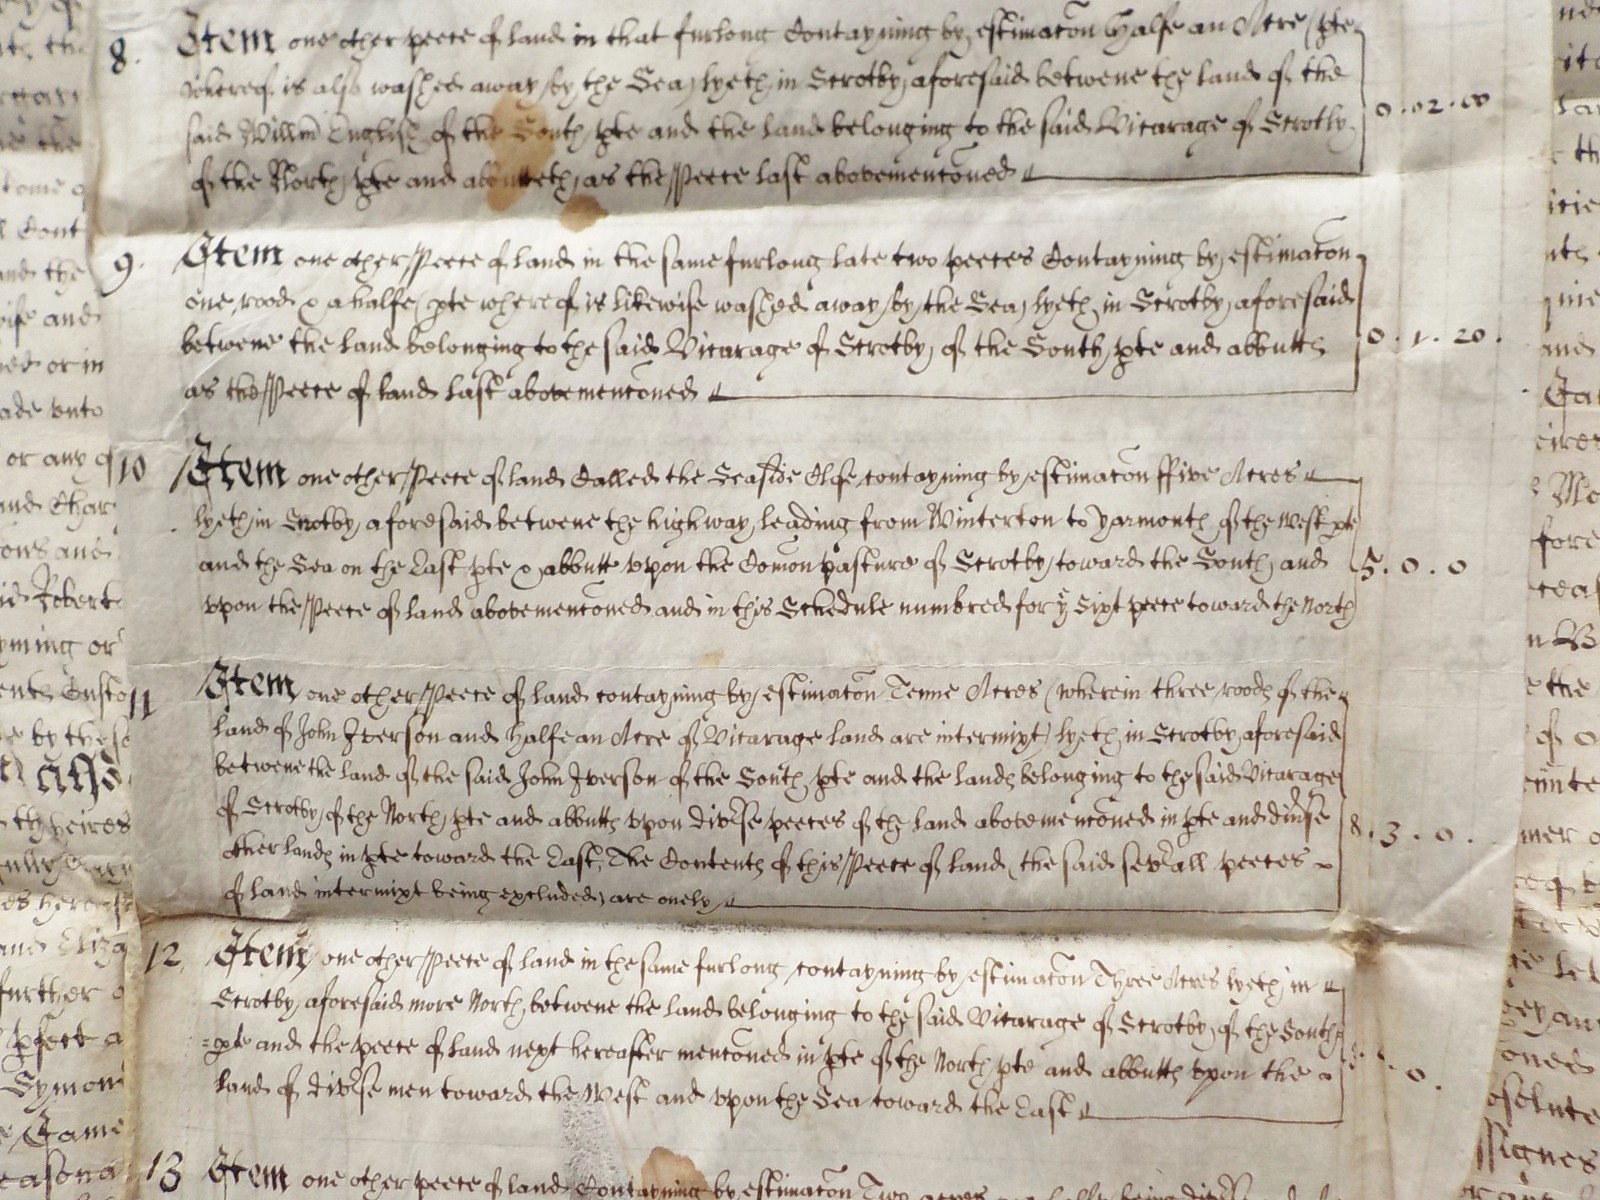 8. Item one other peece of land in that furlong Contayning by estimacon Halfe an Acre (pte
whereof is also washed away by the Sea) lyeth in Scrotby aforesaid betwene the land of the
said Willm English of the South pte and the land belonging to the said Vicarage of Scrotby
of the North pte and abbutteth as the Peece last abovemenconed
0 . 02 . 00
9. Item one other Peece of land in the same furlong late two peeces Contayning by estimacon
one rood & a halfe (pte whereof is likewise washed away by the Sea) lyeth in Scrotby aforesaid
betwene the land belonging to the said Vicarage of Scrotby of the South pte and abbutth
as the Peece of land last abovemenconed
0 . 1 . 20 .
10 Item one other Peece of land Called the Seaside Close contayning by estimacon ffive Acres
lyeth in Scrotby aforesaid betwene the highway leading from Winterton to Yarmouth of the West pte
and the Sea on the East pte & abbutt upon the Comon pasture of Scrotby toward the South and
vpon the Peece of land abovemenconed and in this Schedule numbred for ye Sixt peece toward the North
5 . 0 . 0
11 Item one other Peece of land contayning by estimacon Tenne Acres (wherein three roods of the
land of John Iverson and halfe an Acre of Vicarage land are intermixt) lyeth in Scrotby aforesaid
betwene the land of the said John Iverson of the South pte and the lands belonging to the said Vicarage
of Scrotby of the North pte and abbutth vpon diverse peeces of the land abovemenconed in pte and diverse
other lands in pte toward the East, The Contents of this Peece of land (the said severall peeces
of land intermixt being excluded) are onely
8 . 3 . 0 .
12 Item one other Peece of land in the same furlong contayning by estimacon Three Acres lyeth in
Scrotby aforesaid more North betwene the land belonging to the said Vicarage of Scrotby of the South
pte and the peece of land next hereafter menconed in pte of the North pte and abbutth vpon the
land of diverse men toward the West and vpon the Sea toward the East
0 .
13 Item one other peece of land Contayning by estimacon Two acres